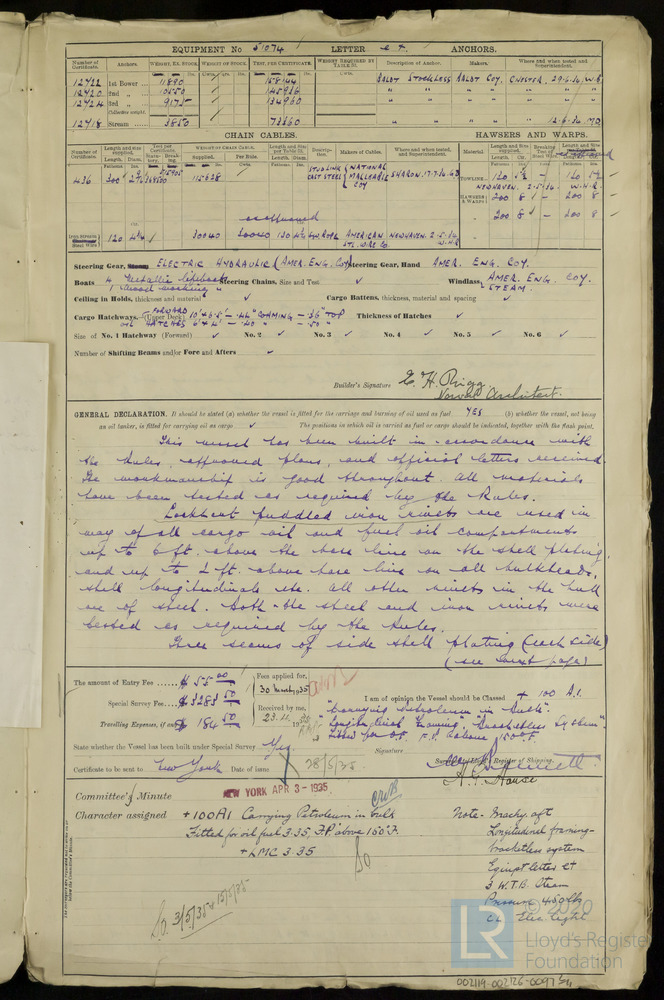 EQUIPMENT No 51074 LETTER ANCHORS.
Number of Certificate. Anchors. WEIGHT, EX. STOCK. WEIGHT OF STOCK. TEST, PER CERTIFICATE. WEIGHT REQUIRED BY TABLE 31. Description of Anchor. Makers. Where and when tested and Superintendent.
12422 1st Bower 11890 158144 BALDT STOCKLESS BALDT COY. CHESTER, 29.6.34, W.B
12420 2nd " 10550 145936 " " " " "
12424 3rd " 9175 134960 " " " " "
Collective weight.
12418 Stream 3850 73360 12.6.34
CHAIN CABLES. HAWSERS AND WARPS.
Number of Certificate. Length and size supplied. Test per Certificate. WEIGHT OF CHAIN CABLE. Length and Size per Table 31. Description. Makers of Cables. Where and when tested, and Superintendent. Material Length and Size supplied. Breaking Test of Steel Wire. Length and Size
436 300 115628 STUD LINK CAST STEEL NATIONAL MALLEABLE COY SHARON. 17.7.34
TOWLINE 120 120
NEWHAVEN. 2-5-34. W.H.R.
HAWSERS & WARPS 200 8 200 8
200 8 200 8
as approved
Iron Stream Steel Wire 120 4¼ 30040 30040 120 4¼ S.W. ROPE AMERICAN STL. WIRE CO. NEWHAVEN. 2-5-34. W.H.R
Steering Gear, Steam ELECTRIC HYDRAULIC (AMER. ENG. COY) Steering Gear, Hand AMER. ENG. COY.
Boats 4 Metallic lifeboats Steering Chains, Size and Test Windlass AMER. ENG. COY. STEAM.
1 Wood working "
Ceiling in Holds, thickness and material Cargo Battens, thickness, material and spacing
Cargo Hatchways. (Upper Deck) FORWARD 10'4 x 5'6" - .44" COAMING - .36" TOP Thickness of Hatches
OIL HATCHES 6'x 4' - .40" - .50"
Size of No. 1 Hatchway (Forward) No. 2 No. 3 No. 4 No. 5 No. 6
Number of Shifting Beams and/or Fore and Afters
Builder's Signature E. H. Rigg
Naval Architect.
GENERAL DECLARATION. It should be stated (a) whether the vessel is fitted for the carriage and burning of oil used as fuel YES (b) whether the vessel, not being
an oil tanker, is fitted for carrying oil as cargo The positions in which oil is carried as fuel or cargo should be indicated, together with the flash point,
This vessel has been built in accordance with
the Rules, approved plans, and official letters received.
The workmanship is good throughout. All materials
have been tested as required by the Rules.
Lockhart puddled iron rivets are used in
way of all cargo oil and fuel oil compartments
up to 6 ft. above the base line on the shell plating
and up to 2 ft. above base line on all bulkheads,
shell longitudinals etc. All other rivets in the hull
are of steel. Both the steel and iron rivets were
tested as required by the Rules.
Three seams of side shell plating (each side)
(see last page)
The amount of Entry Fee $ 55.00 Fees applied for, 30 March 1935
Special Survey Fee $ 3283.50 Received by me,
Travelling Expenses, if any $ 184.50 23.4.1935
I am of opinion the Vessel should be Classed + 100 A.1.
"Carrying Petroleum in Bulk".
"Longitudinal Framing" "Bracketless System"
Fitted for O.F. F.P. above 150°F.
State whether the Vessel has been built under Special Survey Yes
Signature
Surveyor to Lloyd's Register of Shipping.
Certificate to be sent to New York Date of issue 28/5/35
Committee's Minute NEW YORK APR 3 - 1935
Character assigned +100A1 Carrying Petroleum in bulk
Fitted for oil fuel 3.35, F.P. above 150°F.
+ LMC 3.35
Note - Machy. aft
Longitudinal framing-
bracketless system
Eqpt letter
3 W.T.B. Steam
Pressure 450 lbs
Elec. light
3/5/35 15/5/35
LR © 2020
Lloyd's Register
Foundation
002119-002126-0097